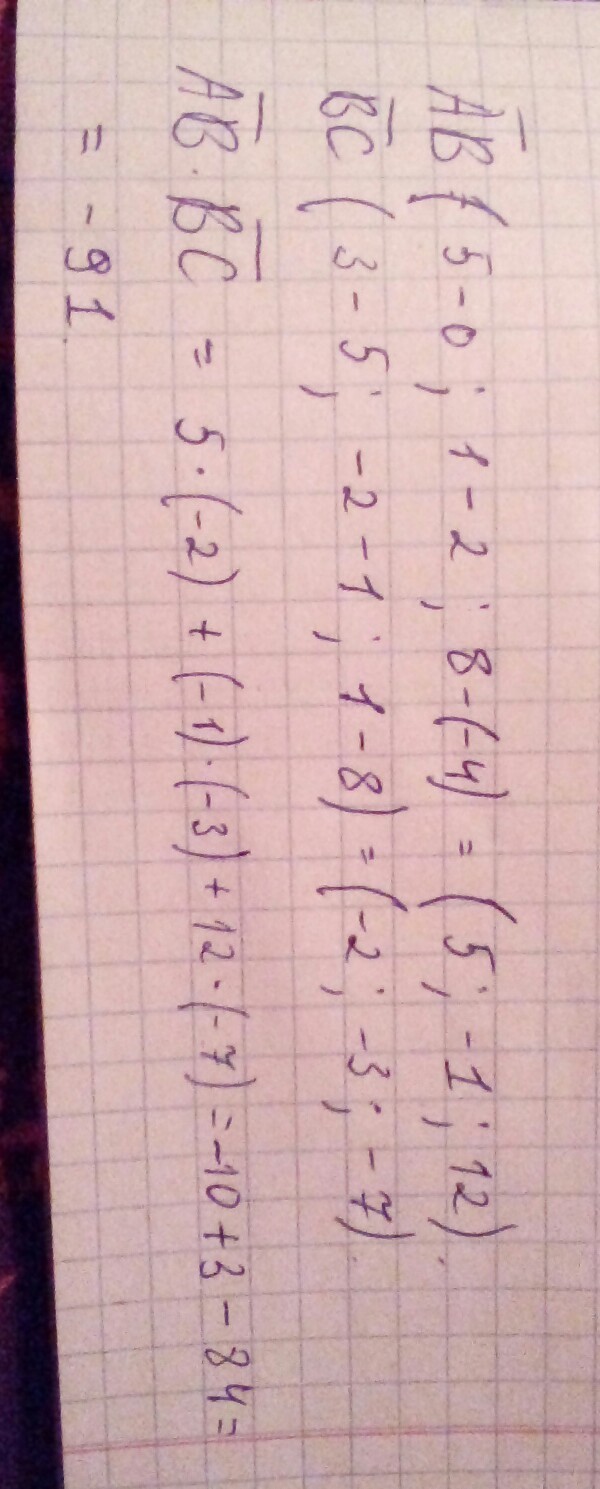 A̅B̅ (5-0; 1-2; 8-(-4) = (5; -1; 12).
B̅C̅ (3-5; -2-1; 1-8) = (-2; -3; -7).
A̅B̅·B̅C̅ = 5·(-2)+(-1)·(-3)+12·(-7)=-10+3-84=
= -91.